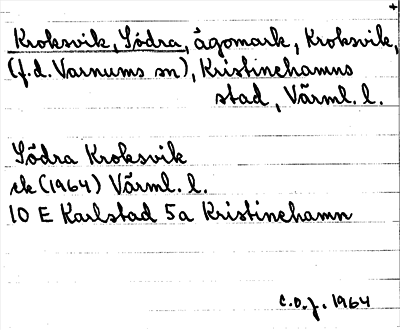 +
Kroksvik, Södra, ägomark, Kroksvik,
(f.d. Varnums sn), Kristinehamns
stad, Värml. l.
Södra Kroksvik
ek (1964) Värml. l.
10 E Karlstad 5a Kristinehamn
C.O.J. 1964